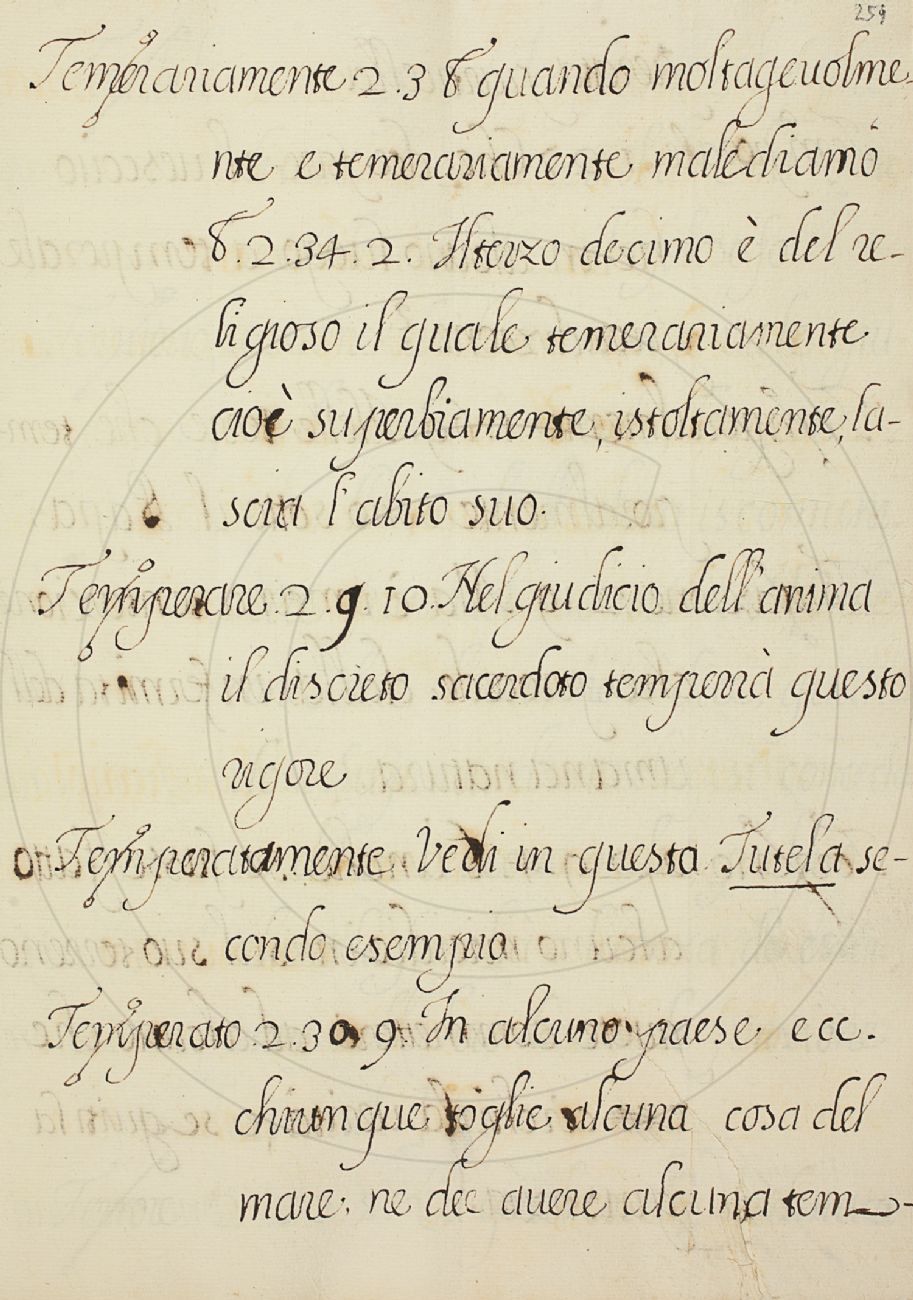 259
Temerariamente 2.3 8 quando molto agevolme-
nte e temerariamente malediamo
8. 2.34.2. Il terzo decimo è del re-
ligioso il quale temerariamente
cioè superbiamente, istoltamente, la-
scia l'abito suo.
Temperare. 2.9.10. Nel giudicio dell'anima
il discreto sacerdoto temperrà questo
rigore
Temperatamente Vedi in questo Tutela se-
condo esempio
Temperato 2.30.9. In alcuno paese ecc.
chiunque toglie alcuna cosa del
mare, ne dee avere alcuna tem-